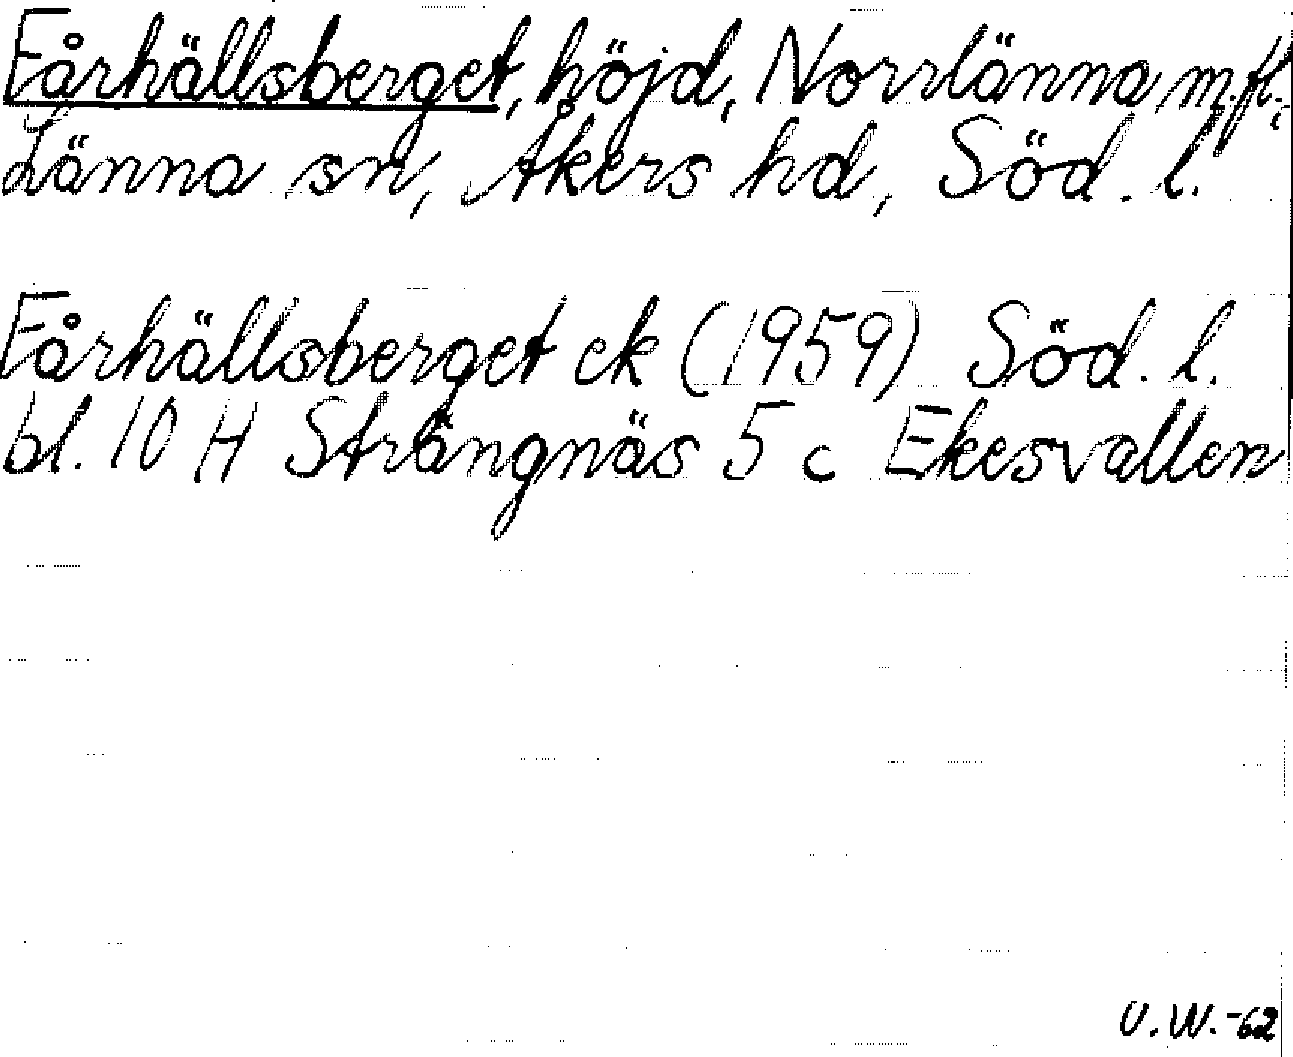 Fårhällsberget, höjd, Norrlänna m.fl.,
Länna sn, Åkers hd, Söd. l.
Fårhällsberget ek (1959) Söd. l.
bl. 10 H Strängnäs 5 c Ekesvallen
U.W.-62